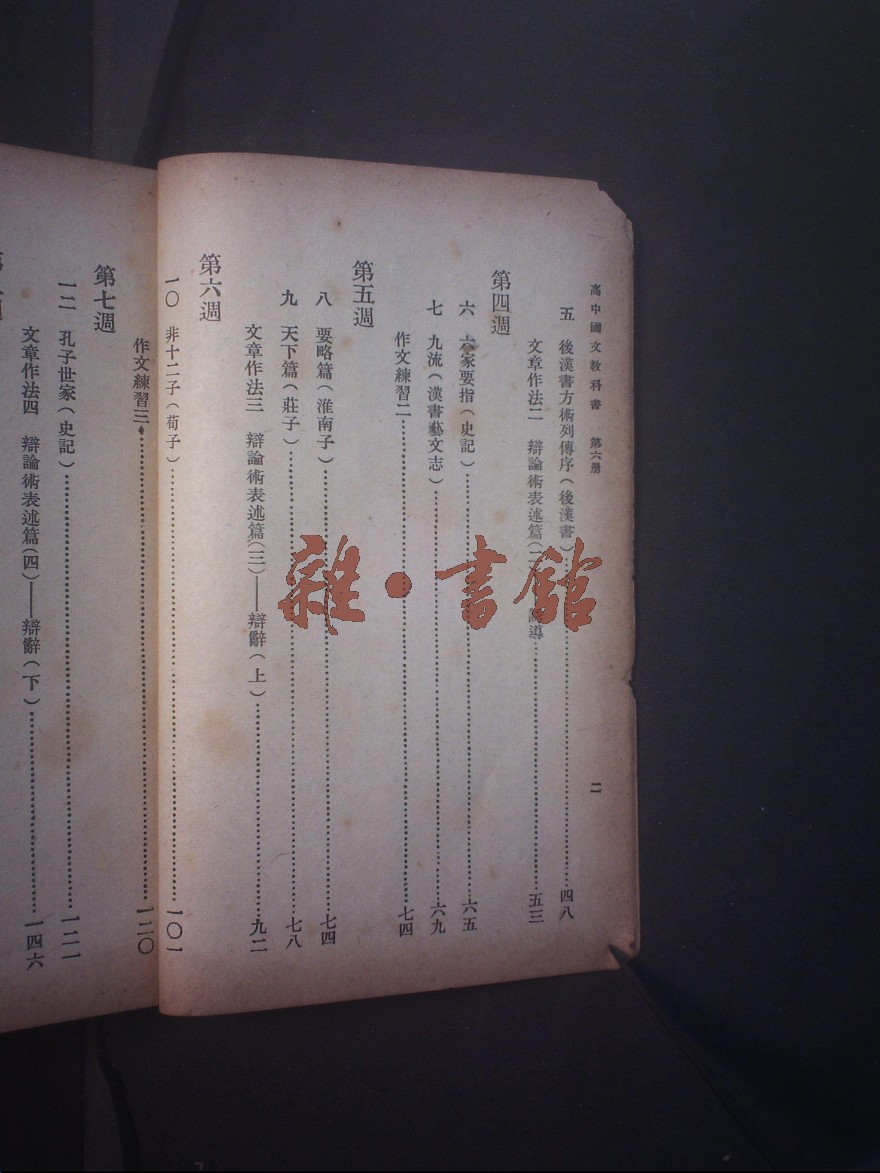 高中國文教科書 第六册 二
五 後漢書方術列傳序(後漢書)……四八
文章作法二 辯論術表述篇(二 導……五三
第四週
六 六家要指(史記)……六五
七 九流(漢書藝文志)……六九
作文練習二……七四
第五週
八 要略篇(淮南子)……七四
九 天下篇(莊子)……七八
文章作法三 辯論術表述篇(三)——辯辭(上)……九二
第六週
一〇 非十二子(荀子)……一〇一
作文練習三……一二〇
第七週
一二 孔子世家(史記)……一二一
文章作法四 辯論術表述篇(四)——辯辭(下)……一四六
雜·書館